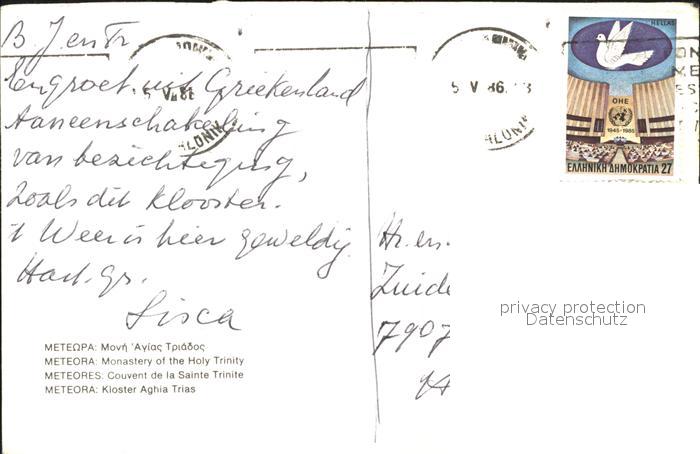 B. J. en Tr
Een groet uit Griekenland
Aaneenschakeling
van bezichtiging,
zoals dit klooster.
't Weer is hier geweldig.
Hart. gr.
Sisca
ΜΕΤΕΩΡΑ: Μονή Ἁγίας Τριάδος
METEORA: Monastery of the Holy Trinity
METEORES: Couvent de la Sainte Trinite
METEORA: Kloster Aghia Trias
5 V 86
ΛΟΝΙΚ
5 V 86
ΑΛΟΝΙΚ
HELLAS
ΟΗΕ
1945-1985
ΕΛΛΗΝΙΚΗ ΔΗΜΟΚΡΑΤΙΑ 27
Hr. en
Zuide
7907
privacy protection
Datenschutz